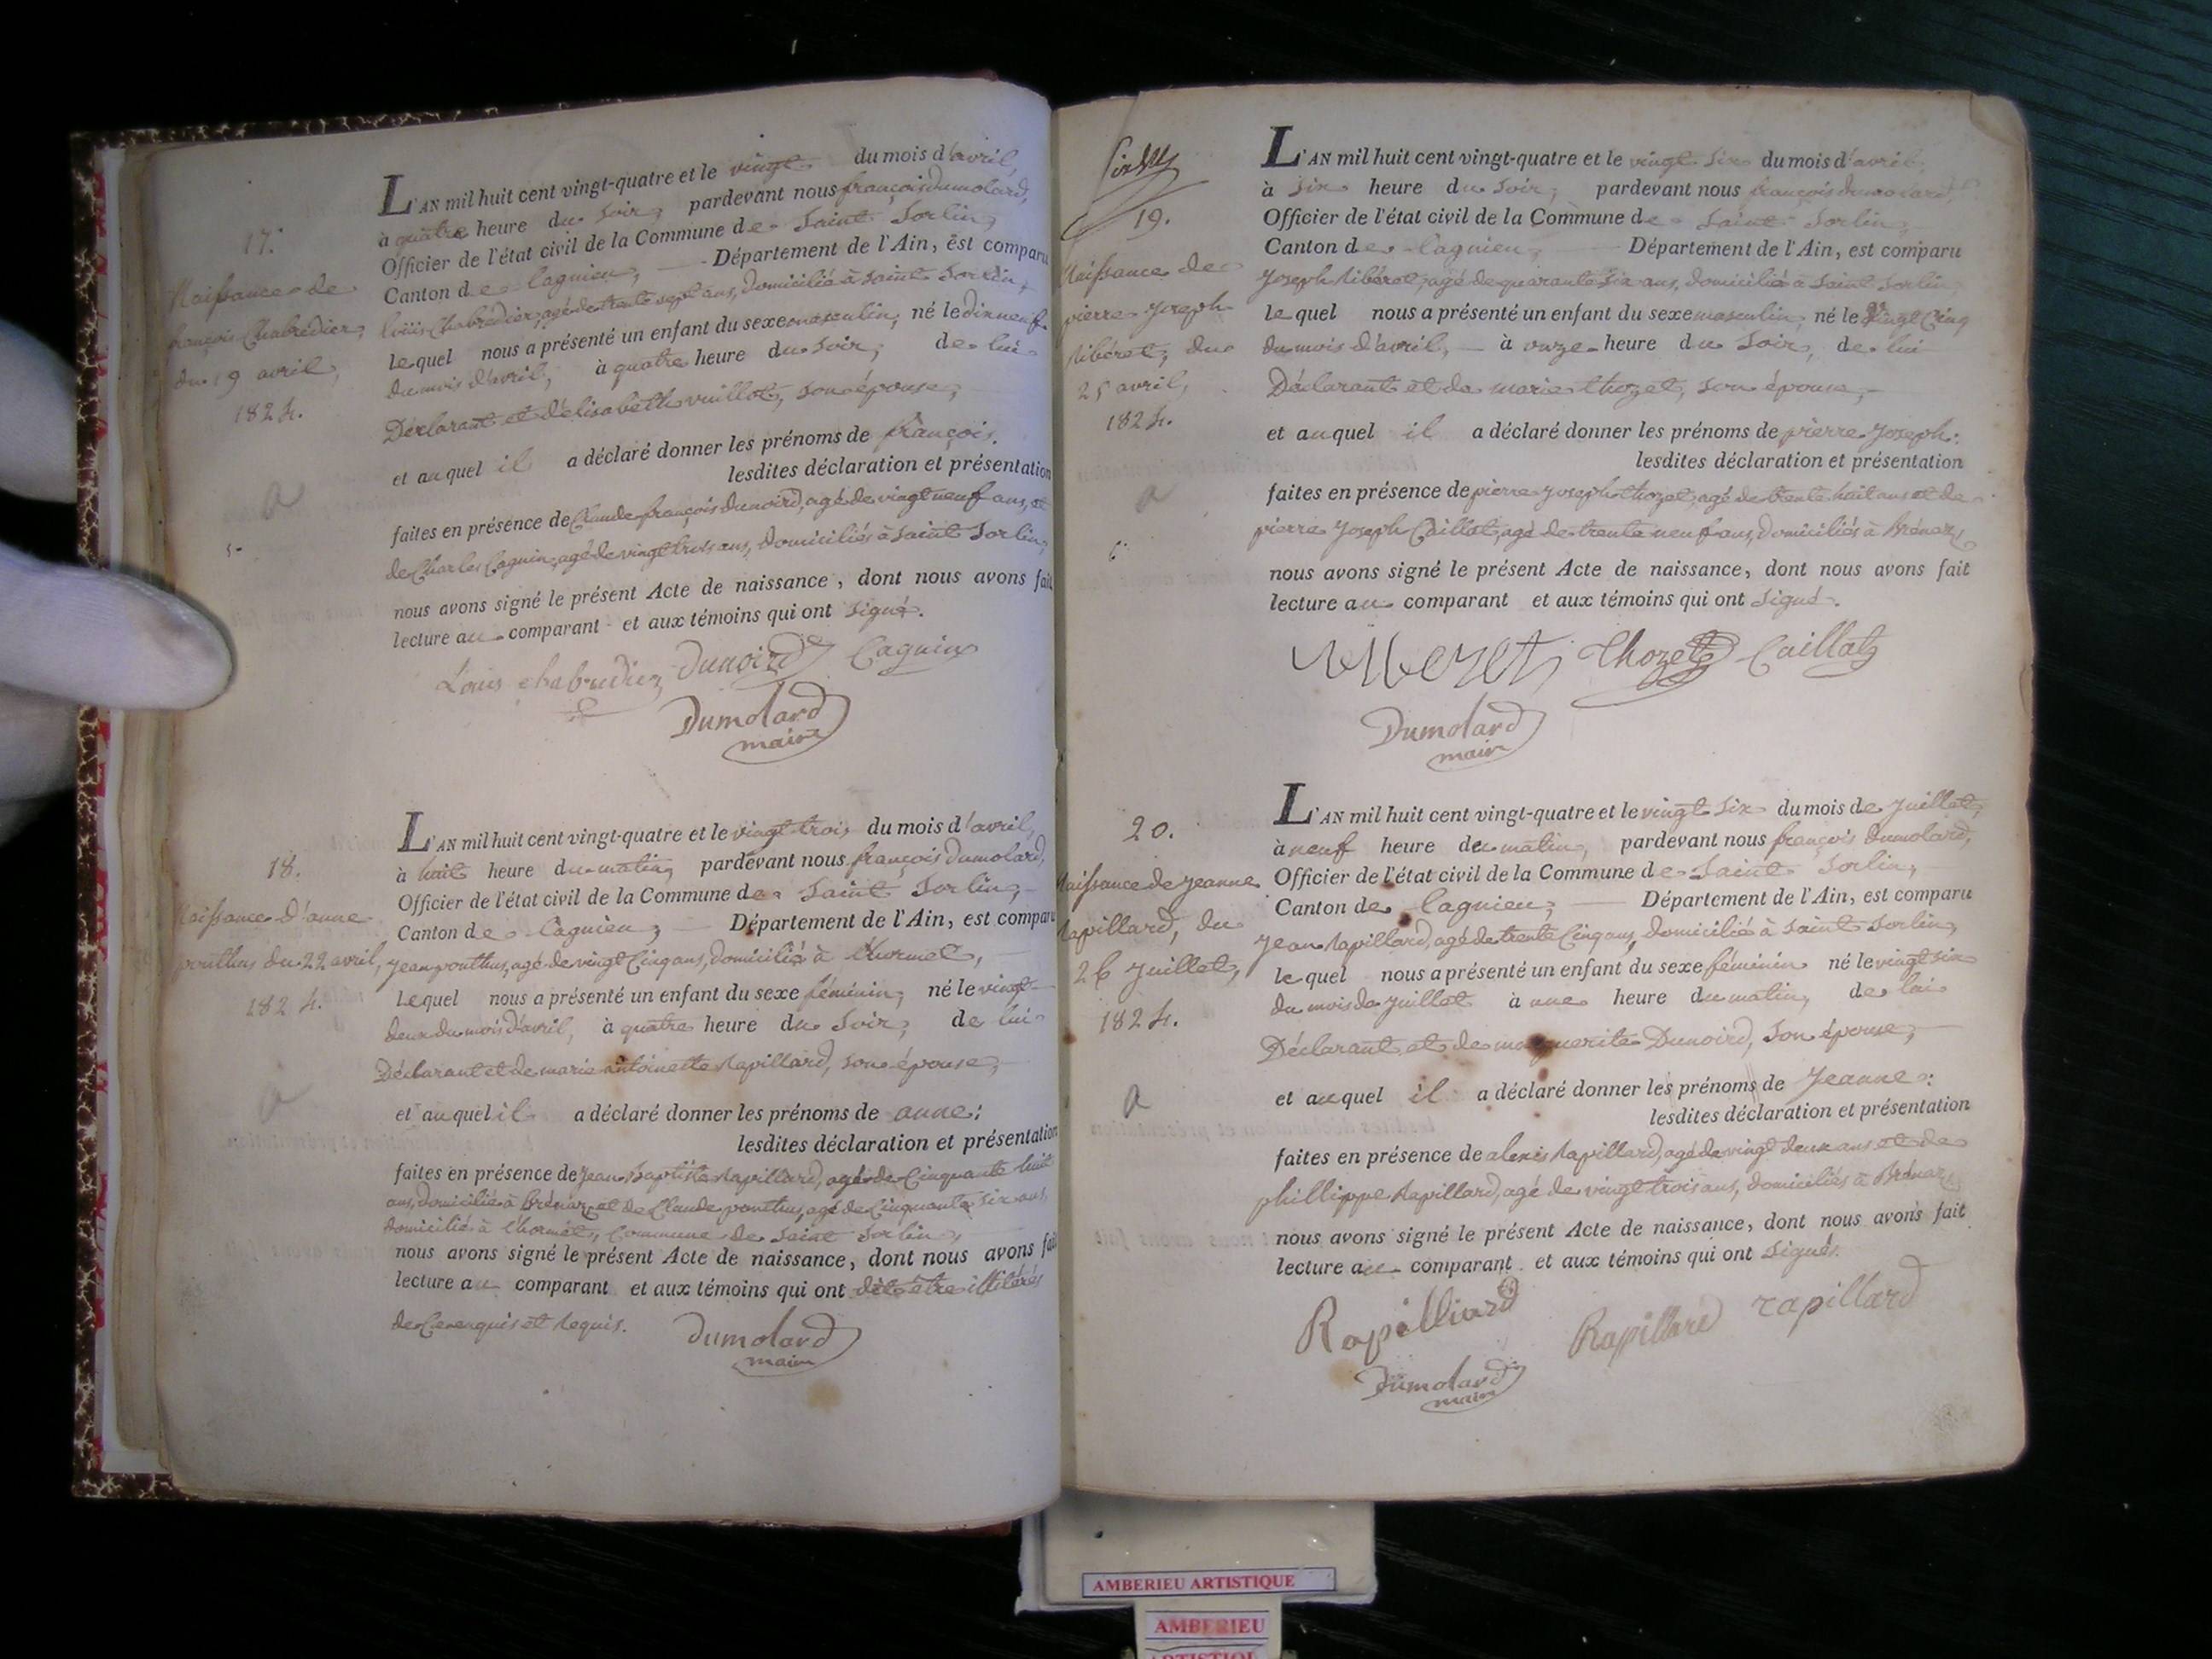 17.
Naissance de
françois Chabredier,
du 19 avril,
1824.
L'AN mil huit cent vingt-quatre et le vingt du mois d'avril,
à quatre heure du soir, pardevant nous françois dumolard,
Officier de l'état civil de la Commune de Saint Sorlin,
Canton de Lagnieu, Département de l'Ain, est comparu
loüis Chabredier, agé de trente sept ans, domicilié à Saint Sorlin,
Lequel nous a présenté un enfant du sexe masculin, né le dix neuf
du mois d'avril, à quatre heure du soir, de lui
Déclarant et d'élisabeth vuillot, son épouse,
et auquel il a déclaré donner les prénoms de françois.
lesdites déclaration et présentation
faites en présence de Claude françois dunoird, agé de vingt neuf ans, et
de Charles Cagnin, agé de vingt trois ans, domiciliés à Saint Sorlin,
nous avons signé le présent Acte de naissance, dont nous avons fait
lecture au comparant et aux témoins qui ont signé.
a
5
Louis chabredier Dunoird Cagnin
Dumolard
maire
18.
Naissance d'anne
ponthus du 22 avril,
1824.
L'AN mil huit cent vingt-quatre et le vingt trois du mois d'avril,
à huit heure du matin, pardevant nous françois dumolard,
Officier de l'état civil de la Commune de Saint Sorlin,
Canton de Lagnieu, Département de l'Ain, est comparu
Jean ponthus, agé de vingt Cinq ans, domicilié à
Lequel nous a présenté un enfant du sexe féminin, né le vingt
deux du mois d'avril, à quatre heure du soir, de lui
Déclarant et de marie antoinette Rapillard, son épouse,
et auquel il a déclaré donner les prénoms de anne;
lesdites déclaration et présentation
faites en présence de Jean Baptiste Rapillard, agé de Cinquante huit
ans, domicilié à Brénaz et de Claude ponthus, agé de Cinquante six ans,
domicilié à Commune de Saint Sorlin,
nous avons signé le présent Acte de naissance, dont nous avons fait
lecture au comparant et aux témoins qui ont dit être illitérés
de Ce enquis et Requis.
a
Dumolard
maire
19.
Naissance de
pierre Joseph
Ribéret, du
25 avril,
1824.
L'AN mil huit cent vingt-quatre et le vingt six du mois d'avril,
à six heure du soir, pardevant nous françois dumolard,
Officier de l'état civil de la Commune de Saint Sorlin,
Canton de Lagnieu, Département de l'Ain, est comparu
Joseph Ribéret, agé de quarante six ans, domicilié à Saint Sorlin,
Lequel nous a présenté un enfant du sexe masculin, né le vingt Cinq
du mois d'avril, à onze heure du soir, de lui
Déclarant et de marie thozet, son épouse,
et auquel il a déclaré donner les prénoms de pierre Joseph:
lesdites déclaration et présentation
faites en présence de pierre Joseph thozet, agé de trente huit ans et de
pierre Joseph Caillat, agé de trente neuf ans, domiciliés à Brénaz
nous avons signé le présent Acte de naissance, dont nous avons fait
lecture au comparant et aux témoins qui ont signé.
a
6
Thozet Caillat
Dumolard
maire
20.
Naissance de Jeanne
Rapillard, du
26 Juillet,
1824.
L'AN mil huit cent vingt-quatre et le vingt six du mois de Juillet,
à neuf heure du matin, pardevant nous françois dumolard,
Officier de l'état civil de la Commune de Saint Sorlin,
Canton de Lagnieu, Département de l'Ain, est comparu
Jean Rapillard, agé de trente Cinq ans, domicilié à Saint Sorlin,
lequel nous a présenté un enfant du sexe féminin né le vingt six
du mois de Juillet à une heure du matin, de lui
Déclarant et de marguerite Dunoird, son épouse,
et auquel il a déclaré donner les prénoms de Jeanne:
lesdites déclaration et présentation
faites en présence de alexis Rapillard, agé de vingt deux ans et de
phillippe Rapillard, agé de vingt trois ans, domiciliés à Brénaz
nous avons signé le présent Acte de naissance, dont nous avons fait
lecture au comparant et aux témoins qui ont signés.
a
Rapilliard Rapillard rapillard
Dumolard
maire
AMBERIEU ARTISTIQUE
AMBERIEU
ARTISTIQUE